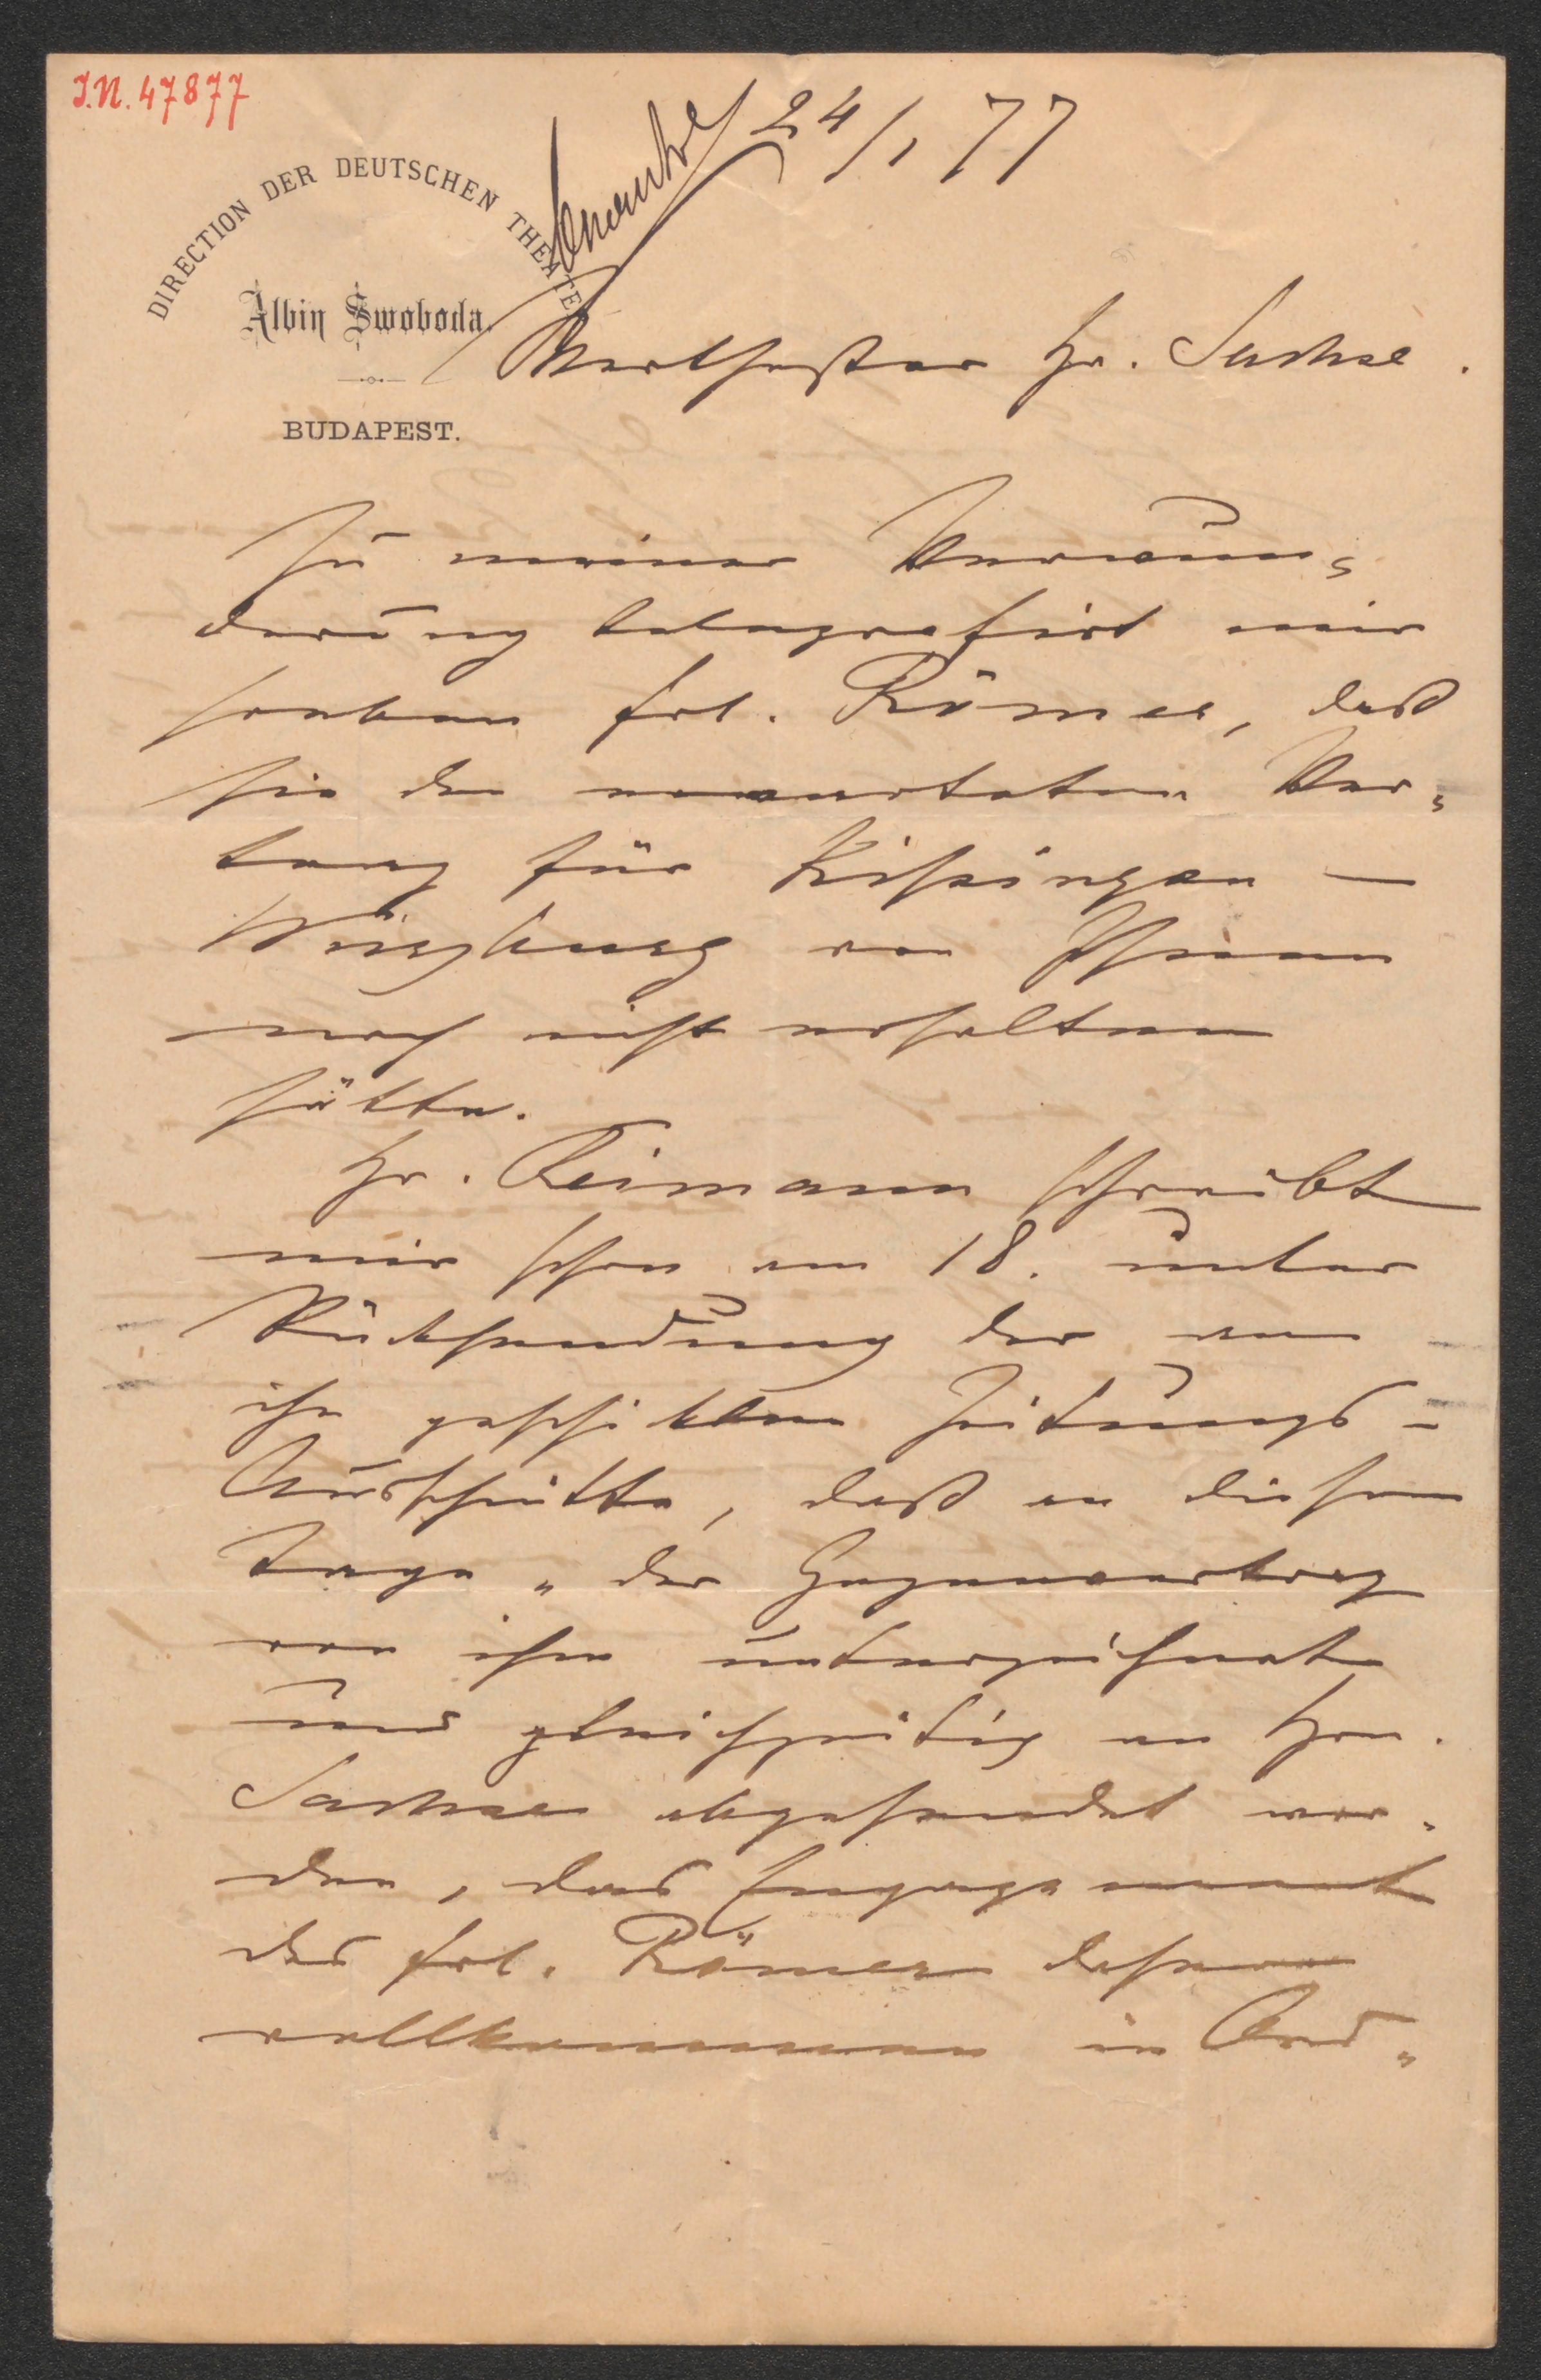 I.N. 47877
24/1 77
DIRECTION DER DEUTSCHEN THEATER
Albin Swoboda.
BUDAPEST.
Werthester Hr. Sachse.
Zu meiner Verwun-
derung telegrafirt mir
soeben Frl. Römer, daß
sie den erwarteten Ver-
trag für Kissingen —
Würzburg von Ihnen
noch nicht erhalten
hätte.
Hr. Reimann schreibt
mir schon am 18. unter
Rücksendung der an
ihn geschickten Zeitungs-
Ausschnitte, daß an diesem
Tage „der Gegenvertrag
von ihm unterzeichnet
und gleichzeitig an Hrn.
Sachse abgesendet wor-
den, das Engagement
des Frl. Römer daher
vollkommen in Ord-